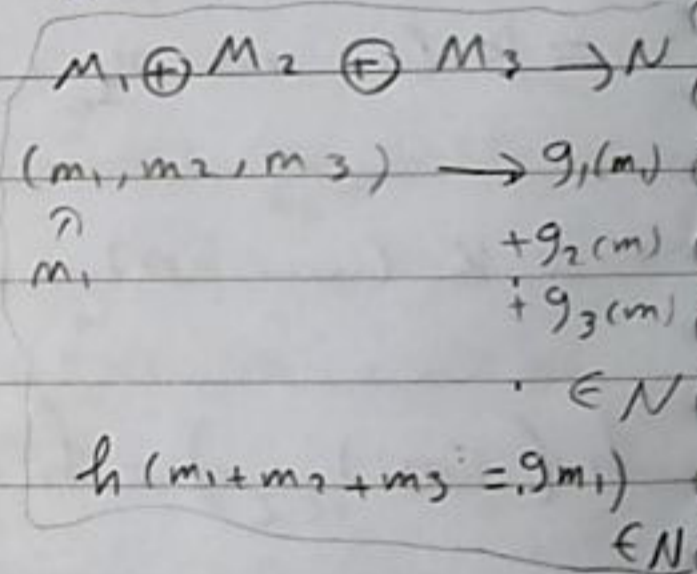 M₁ ⊕ M₂ ⊕ M₃ → N
(m₁, m₂, m₃) → g₁(m₁)
∩ + g₂(m)
m₁ + g₃(m)
∈ N
h (m₁ + m₂ + m₃ = g m₁)
∈ N